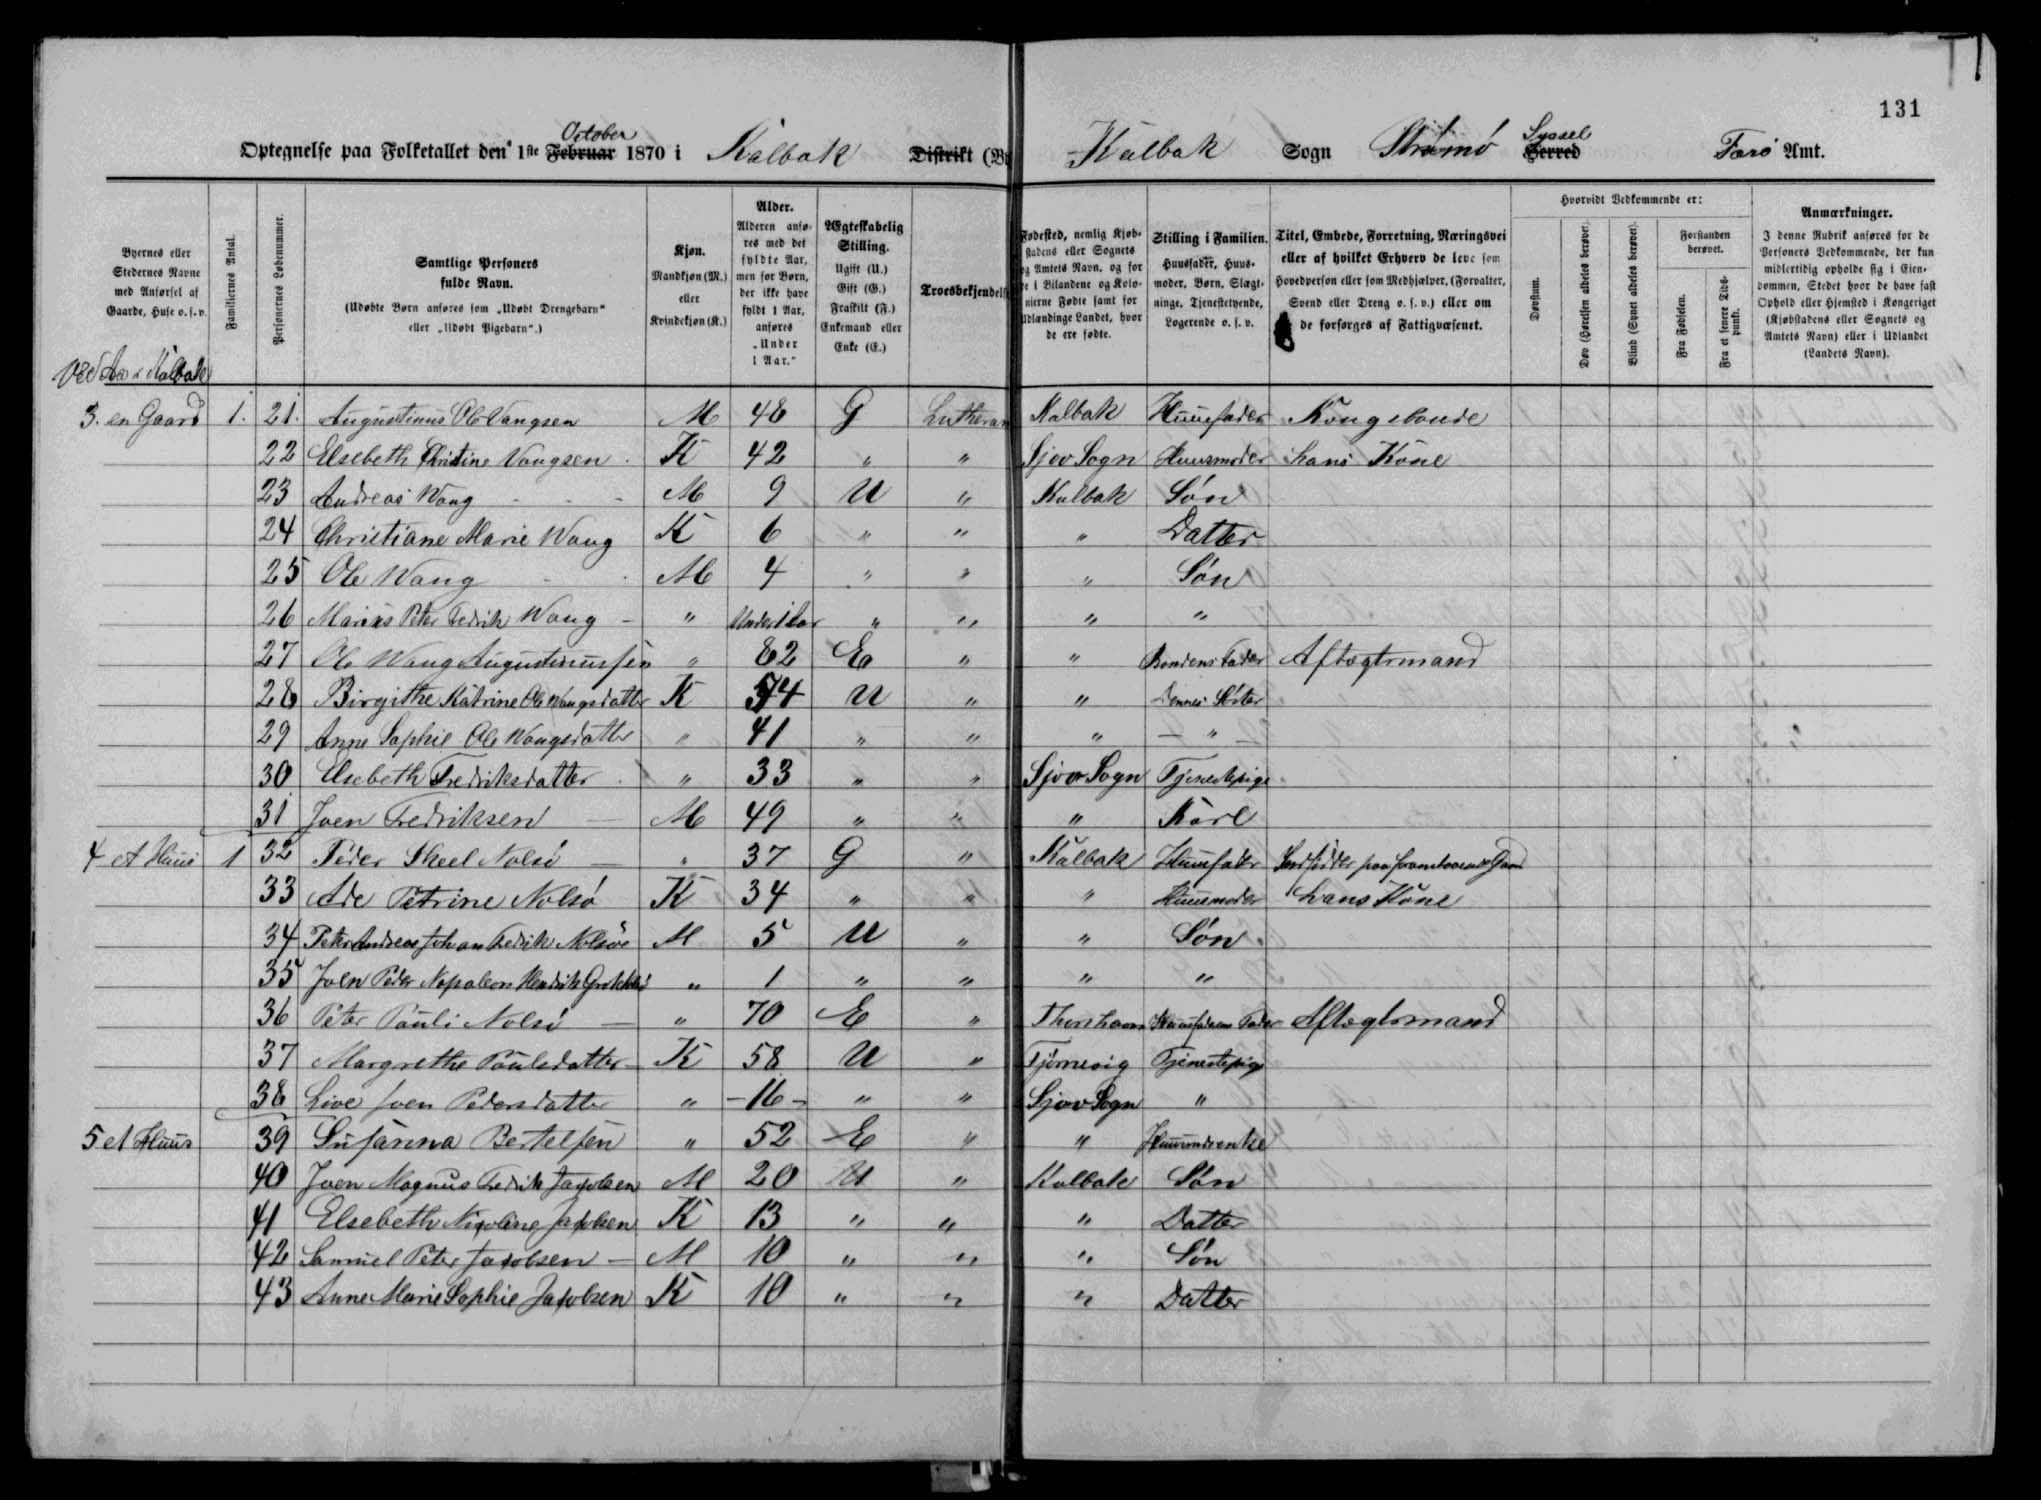 131
Optegnelse paa Folketallet den 1ste October Februar 1870 i Kalbak Distrikt Kalbak Sogn Strømø Syssel Herred Farø Amt.
Byernes eller Stedernes Navne med Anførsel af Gaarde, Huse o. s. v.
Familiernes Antal.
Personernes Løbenummer.
Samtlige Personers fulde Navn. (Udøbte Børn anføres som „Udøbt Drengebarn“ eller „Udøbt Pigebarn“.)
Kjøn. Mandkjøn (M.) eller Kvindekjøn (K.)
Alder. Alderen anføres med det fyldte Aar, men for Børn, der ikke have fyldt 1 Aar, anføres „Under 1 Aar.“
Ægteskabelig Stilling. Ugift (U.) Gift (G.) Fraskilt (F.) Enkemand eller Enke (E.)
Troesbekjendelse
Fødested, nemlig Kjøbstadens eller Sognets og Amtets Navn, og for de i Bilandene og Kolonierne Fødte samt for Udlændinge Landet, hvor de ere fødte.
Stilling i Familien. Huusfader, Huusmoder, Børn, Slægtninge, Tjenestetyende, Logerende o. s. v.
Titel, Embede, Forretning, Næringsvei eller af hvilket Erhverv de leve som Hovedperson eller som Medhjælper, (Forvalter, Svend eller Dreng o. s. v.) eller om de forsørges af Fattigvæsenet.
Hvorvidt Vedkommende er:
Døvstum.
Døv (Hørelsen aldeles berøvet).
Blind (Synet aldeles berøvet).
Forstanden berøvet.
Fra Fødselen.
Fra et senere Tidspunkt.
Anmærkninger. I denne Rubrik anføres for de Personers Vedkommende, der kun midlertidig opholde sig i Eiendommen, Stedet hvor de have fast Ophold eller Hjemsted i Kongeriget (Kjøbstadens eller Sognets og Amtets Navn) eller i Udlandet (Landets Navn).
Ved Kalbak
3. en Gaard 1. 21. Augustinus Ole Vangsen M 48 G Lutheran Kalbak Huusfader Kongsbonde
22 Elsebeth Christine Vangsen K 42 " " Sjov Sogn Huusmoder hans Kone
23 Andreas Wang M 9 U " Kalbak Søn
24 Christiane Marie Wang K 6 " " " Datter
25 Ole Wang M 4 " " " Søn
26 Marius Peter Fedrik Wang " Under 1 Aar " " " "
27 Ole Wang Augustinussen " 82 E " " Bondens Fader Aftægtsmand
28 Birgithe Katrine Ole Wangsdatter K 44 U " " Dennes Søster
29 Anne Sophie Ole Wangsdatter " 41 " " " — " —
30 Elsebeth Fredriksdatter " 33 " " Sjov Sogn Tjenestepige
31 Joen Fredriksen M 49 " " " Karl
4 et Huus 1 32 Peder Skeel Nolsø " 37 G " Kalbak Huusfader
33 Ade Petrine Nolsø K 34 " " " Huusmoder hans Kone
34 Peter Andreas Johan Fedrik Nolsøe M 5 U " " Søn
35 Joen Peder Napoleon Hendrik " 1 " " " "
36 Peter Pauli Nolsø " 70 E " Thorshavn Huusfaderens Fader Aftægtsmand
37 Margrethe Poulsdatter K 58 U " Tjørnevig Tjenestepige
38 Live Joen Pedersdatter " –16– " " Sjov Sogn "
5 et Huus 39 Susanna Bertelsen " 52 E " "
40 Joen Magnus Fredrik Jacobsen M 20 U " Kalbak Søn
41 Elsebeth Nicoline Jacobsen K 13 " " " Datter
42 Samuel Peter Jacobsen M 10 " " " Søn
43 Anne Marie Sophie Jacobsen K 10 " " " Datter